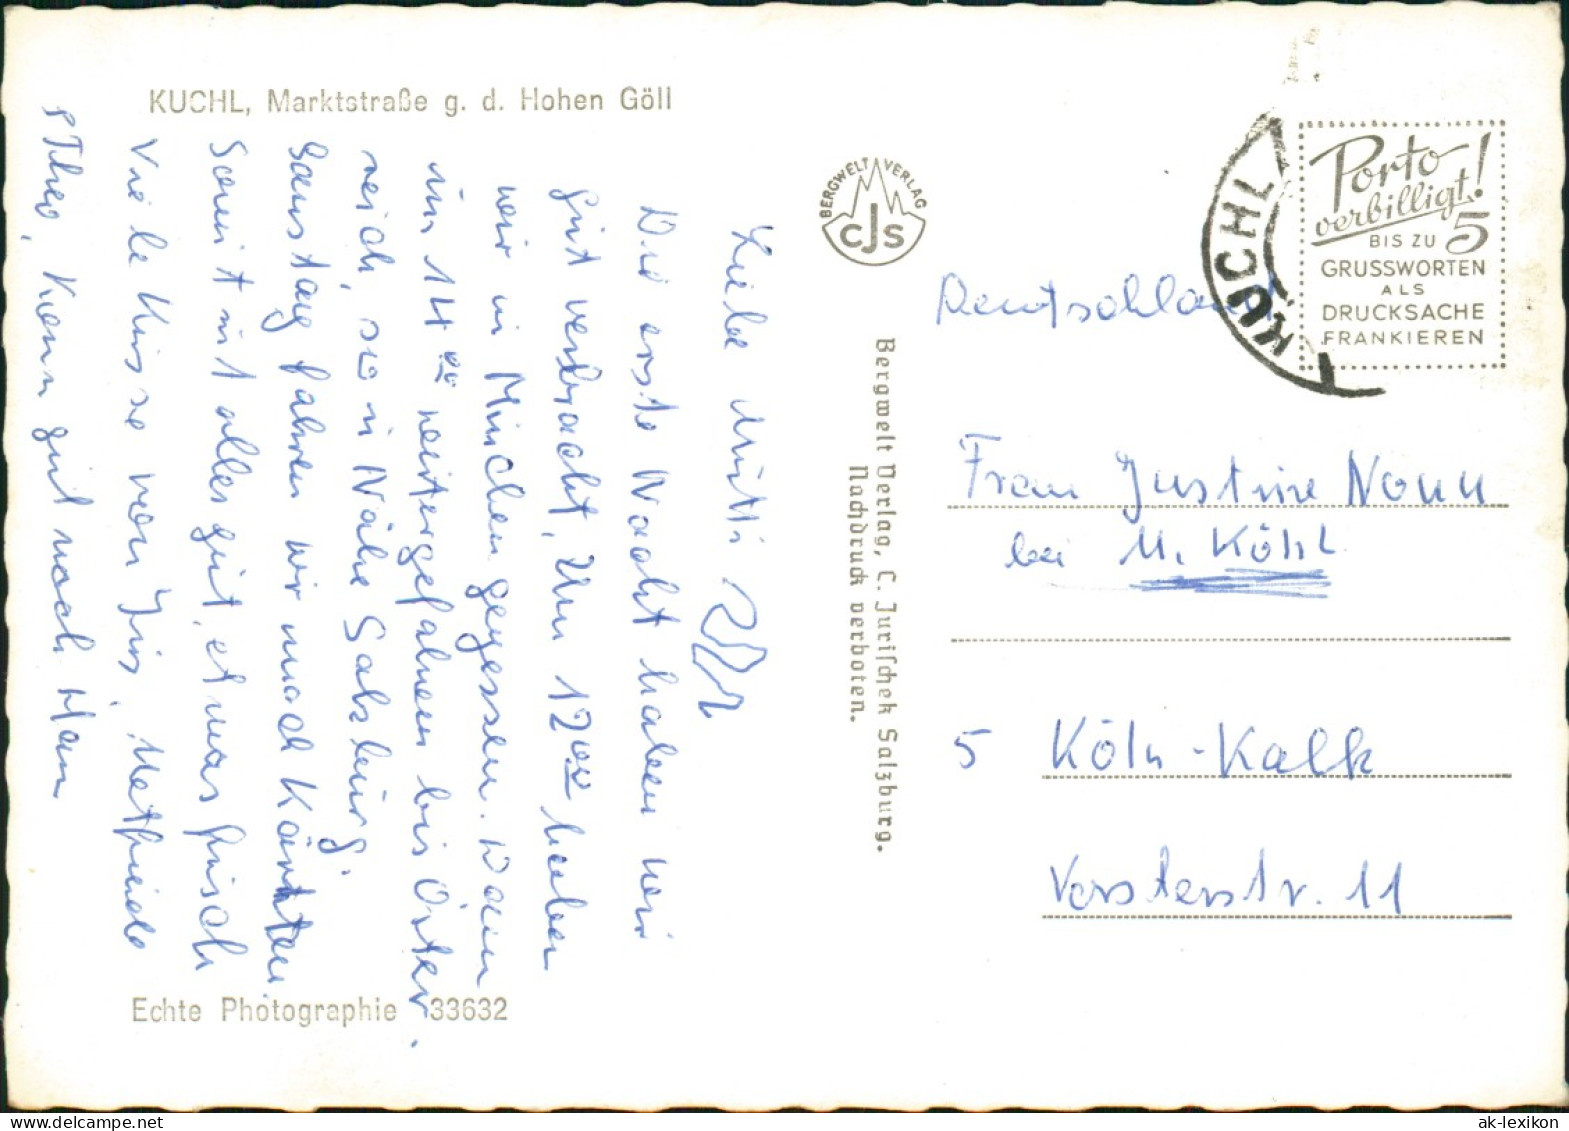 KUCHL, Marktstraße g. d. Hohen Göll
Liebe Mutti
Die erste Nacht haben wir
gut verbracht, Um 12 oo haben
wir in München gegessen. Dann
um 14 oo weitergefahren bis Öster.
reich, so in Nähe Salzburg.
Samstag fahren wir nach Kärnten.
Sonst ist alles gut, etwas frisch
Viele Küsse von
Theo, Kann gut noch
Echte Photographie 33632
BERGWELT VERLAG
CJS
Bergwelt Verlag, C. Jurischek Salzburg.
Nachdruck verboten.
KUCHL
Porto
verbilligt!
BIS ZU 5
GRUSSWORTEN
ALS
DRUCKSACHE
FRANKIEREN
Deutschland
Frau Justine Nonn
bei M. Köhl
5 Köln-Kalk
Vorsterstr. 11
ak-lexikon